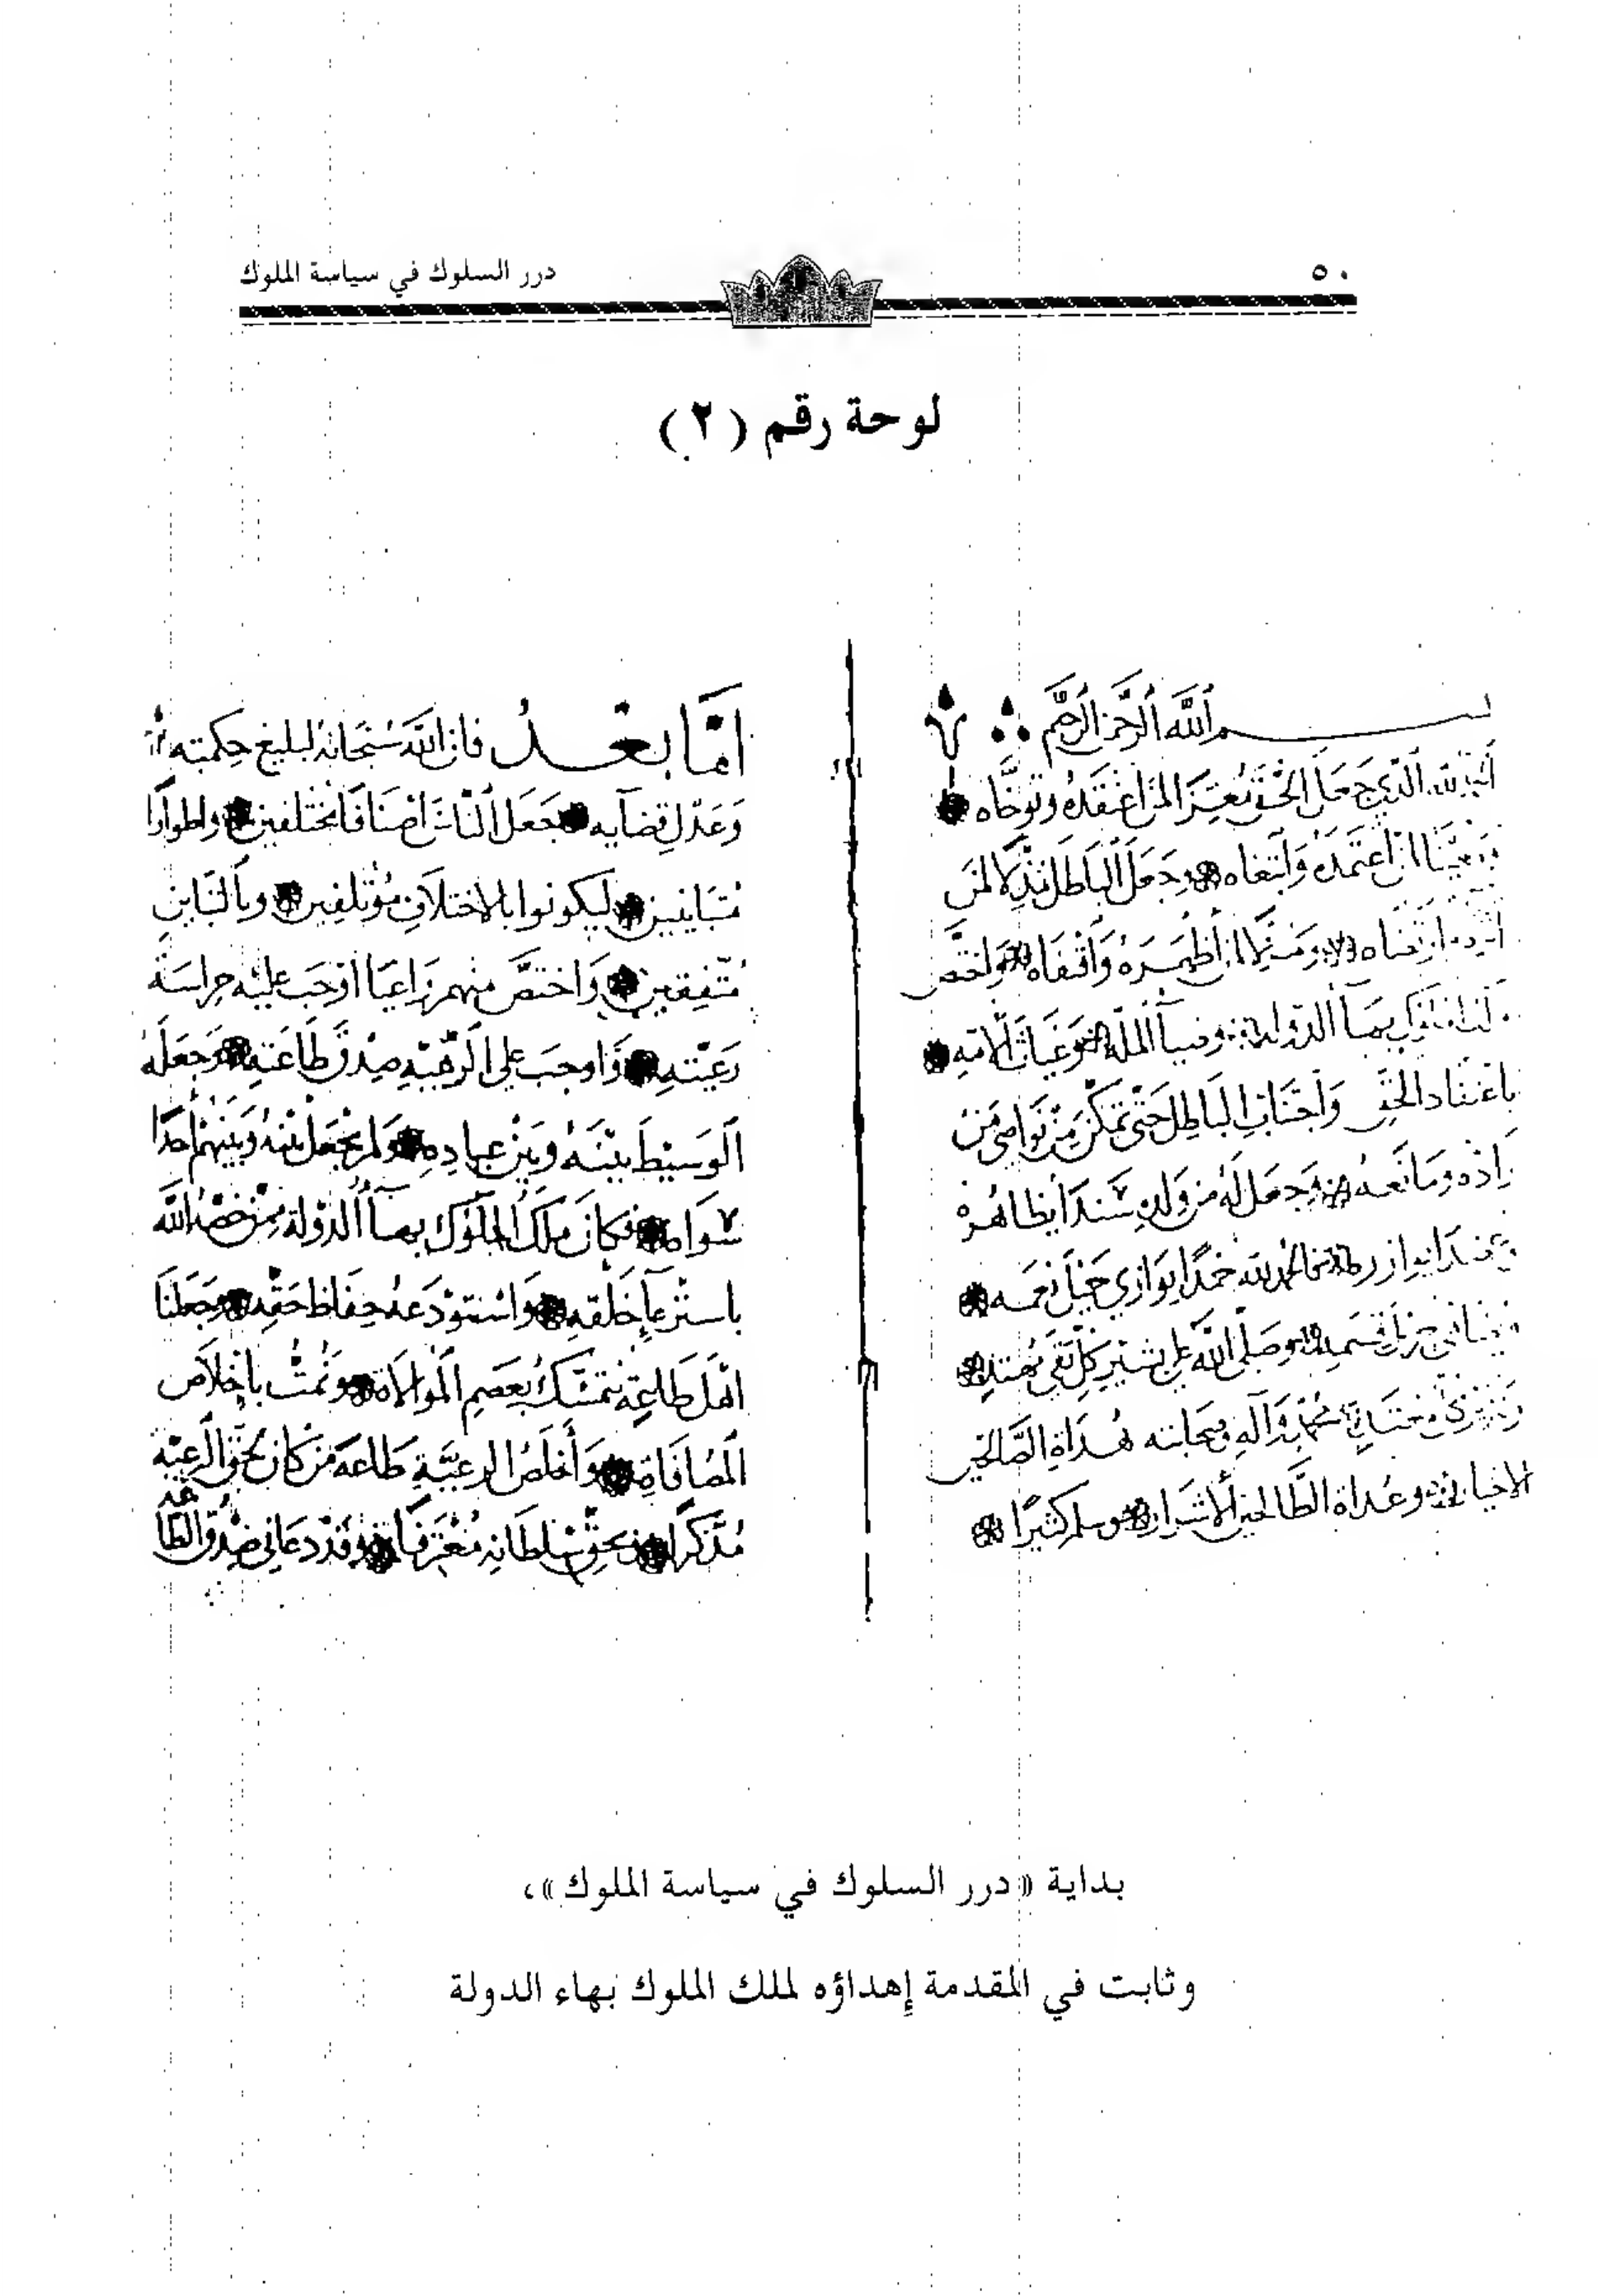 ٥٠
درر السلوك في سياسة الملوك
لوحة رقم (٢)
بسم اللَّه الرحمن الرحيم
الحمد لله الذي جَعَلَ الحق مُعِزًّا لمن اعتقده وتوخَّاه
ومعينا لمن اعتمده وابتغاه وجعل الباطل مذلا لمن
ارتضاه ومزيلا لمن أظهره واقتفاه واختص
بهاء الدولة وضياء الملة وغياث الأمة
باعتقاد الحق واجتناب الباطل حتى تمكن من نواصي من
ومانعه وجعل له من ولده سندا يظاهره
يوازره فالحمد لله حمدا يوازي جزيل نعمه
قسمه وصلى الله على بشير كل تقي مهتد
محمد وآله وصحابته هداة الصالحين
الاخيار وعداة الطالحين الأشرار وسلم كثيرا
امَّا بعد فان اللَّه سبحانه لبليغ حكمته
وَعَدل قضآيه جَعَل النَّاس اصنافا مختلفين واطوارًا
مُتَباينين ليكونوا بالاختلاف مُؤتلفين وبالتباين
مُتّفِقين وَاختصَّ منهم رَاعيًا اوجَب عليْه حراسَة
رَعيّته وَاوجبَ علي الرّعيّةِ صِدقَ طَاعَتِهِ وَجَعَلَهُ
الوَسيْط بيْنَهُ وبيْنَ عبادِهِ وَلم يَجْعَل بيْنهُ وبَيْنَهُمْ أحدًا
سوَاه فكانَ مَلكُ الملوك بهاءُ الدولة ممنْ خصَّهُ اللَّه
باسترعآء خَلقهِ وَاستودَعهُ حِفَاظ حَقّهِ وَجَعلنَا
اهْل طَاعته نتمسّكُ بعصَمِ الموالاة ونمُتُّ باخلاَص
المصَافَاةِ وَأخلَصُ الرعيَّةِ طاعة مَن كان بحق الرعيّة
مُذَّكرًا وبحقّ سلطانهِ مُعْتَرفًا وقد دعاني صِدق الطاعة
بداية «درر السلوك في سياسة الملوك»،
وثابت في المقدمة إهداؤه لملك الملوك بهاء الدولة